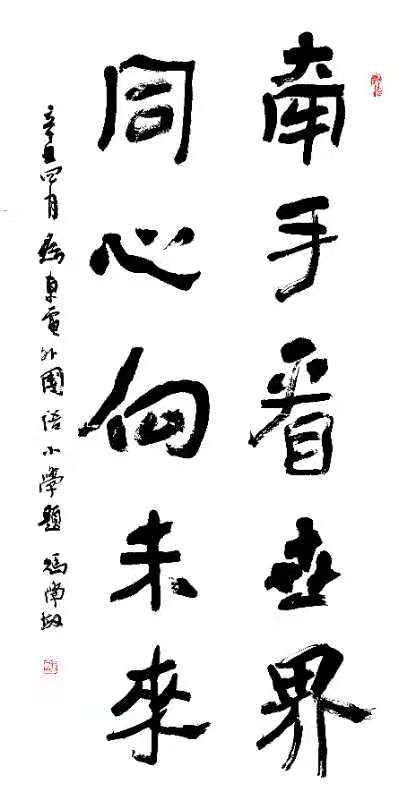 牵手看世界
同心向未來
辛丑四月為東電外國語小學題 馮